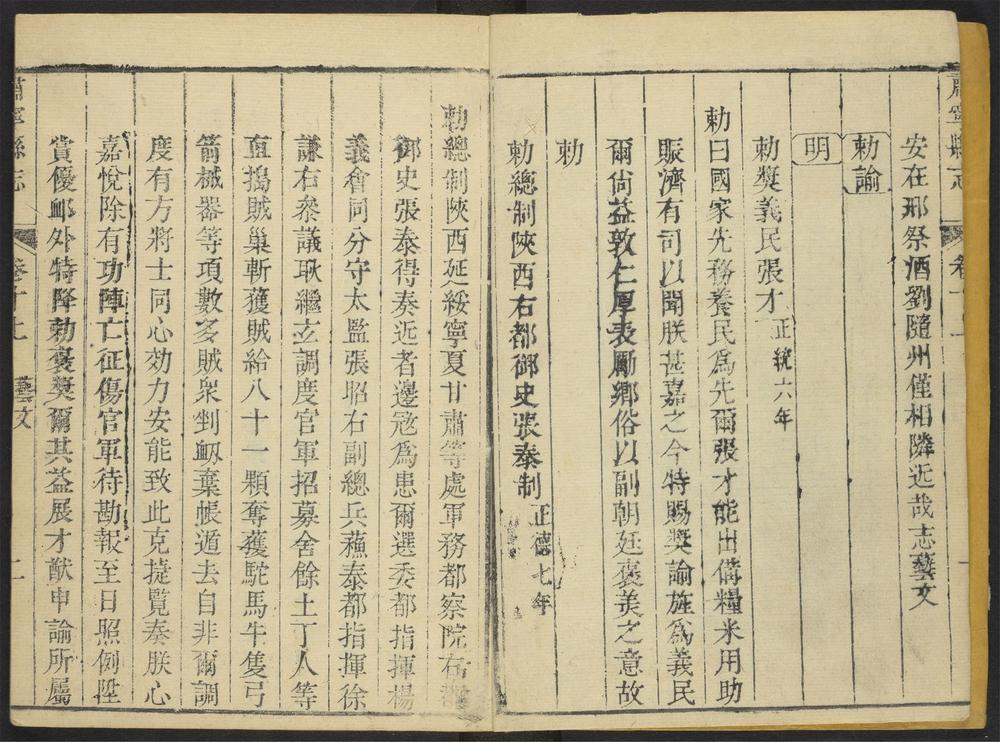 肅寧縣志
安在邢祭酒劉隨州僅相隣近哉志藝文
勅諭
明
勅獎義民張才正統六年
勅曰國家先務養民爲先爾張才能出備糧米用助
賑濟有司以聞朕甚嘉之今特賜獎諭旌爲義民
爾尙益敦仁厚表勵鄉俗以副朝廷褒美之意故
勅
勅總制陝西右都御史張泰制正德七年
勅總制陝西延綏寧夏甘肅等處軍務都察院右都
御史張泰得奏近者邊寇爲患爾選委都指揮楊
義會同分守太監張昭右副總兵蘓泰都指揮徐
謙右叅議耿繼玄調度官軍招募舍餘土丁人等
直搗賊巢斬獲賊給八十一顆奪獲駝馬牛隻弓
箭械器等項數多賊衆剉衂棄帳遁去自非爾調
度有方將士同心効力安能致此克捷覽奏朕心
嘉悅除有功陣亡征傷官軍待勘報至日照例陞
賞優卹外特降勅褒獎爾其益展才猷申諭所屬
肅寧縣志 卷十 藝文 二